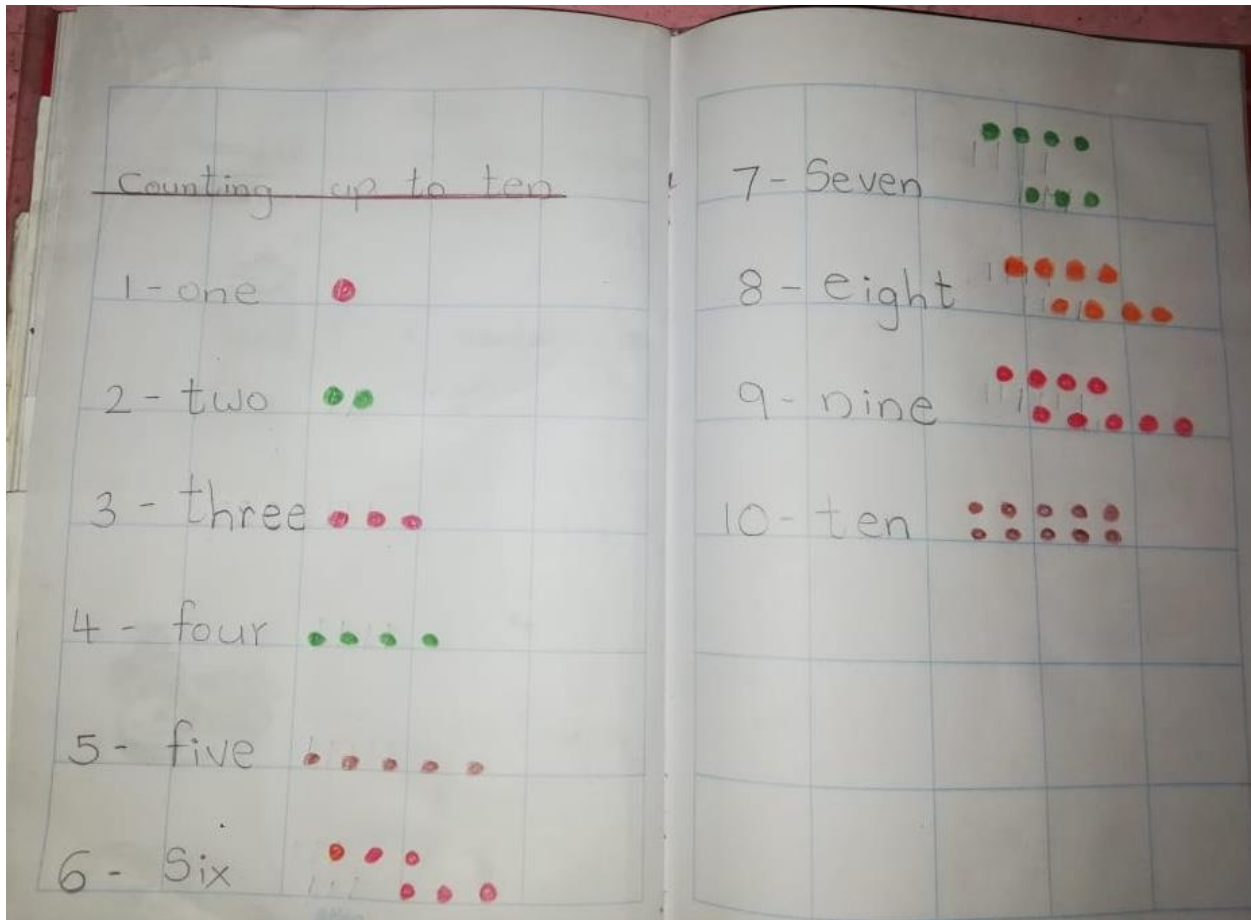 Counting up to ten
1 - one
2 - two
3 - three
4 - four
5 - five
6 - Six
7 - Seven
8 - eight
9 - nine
10 - ten